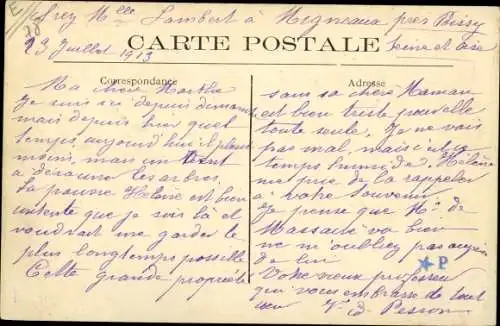 chez Mlle Lambert à Migneaux près Poissy
23 Juillet 1913
Seine et Oise
CARTE POSTALE
Correspondance
Adresse
Ma chère Marthe
Je suis ici depuis dimanche
mais depuis hier quel
temps, aujourd'hui il pleut
moins, mais un vent
a déraciner les arbres.
La pauvre Hélène est bien
contente que je sois là et
voudrait me garder le
plus longtemps possible
Cette grande propriété
sans sa chère Maman
est bien triste pour elle
toute seule. Je ne vais
pas mal, mais c'est
temps humide. Hélène
me prie de la rappeler
à votre souvenir
Je pense que Mr de
Massault va bien
ne m'oubliez pas auprès
de lui
Votre vieux professeur
qui vous embrasse de tout
cœur Besson
P